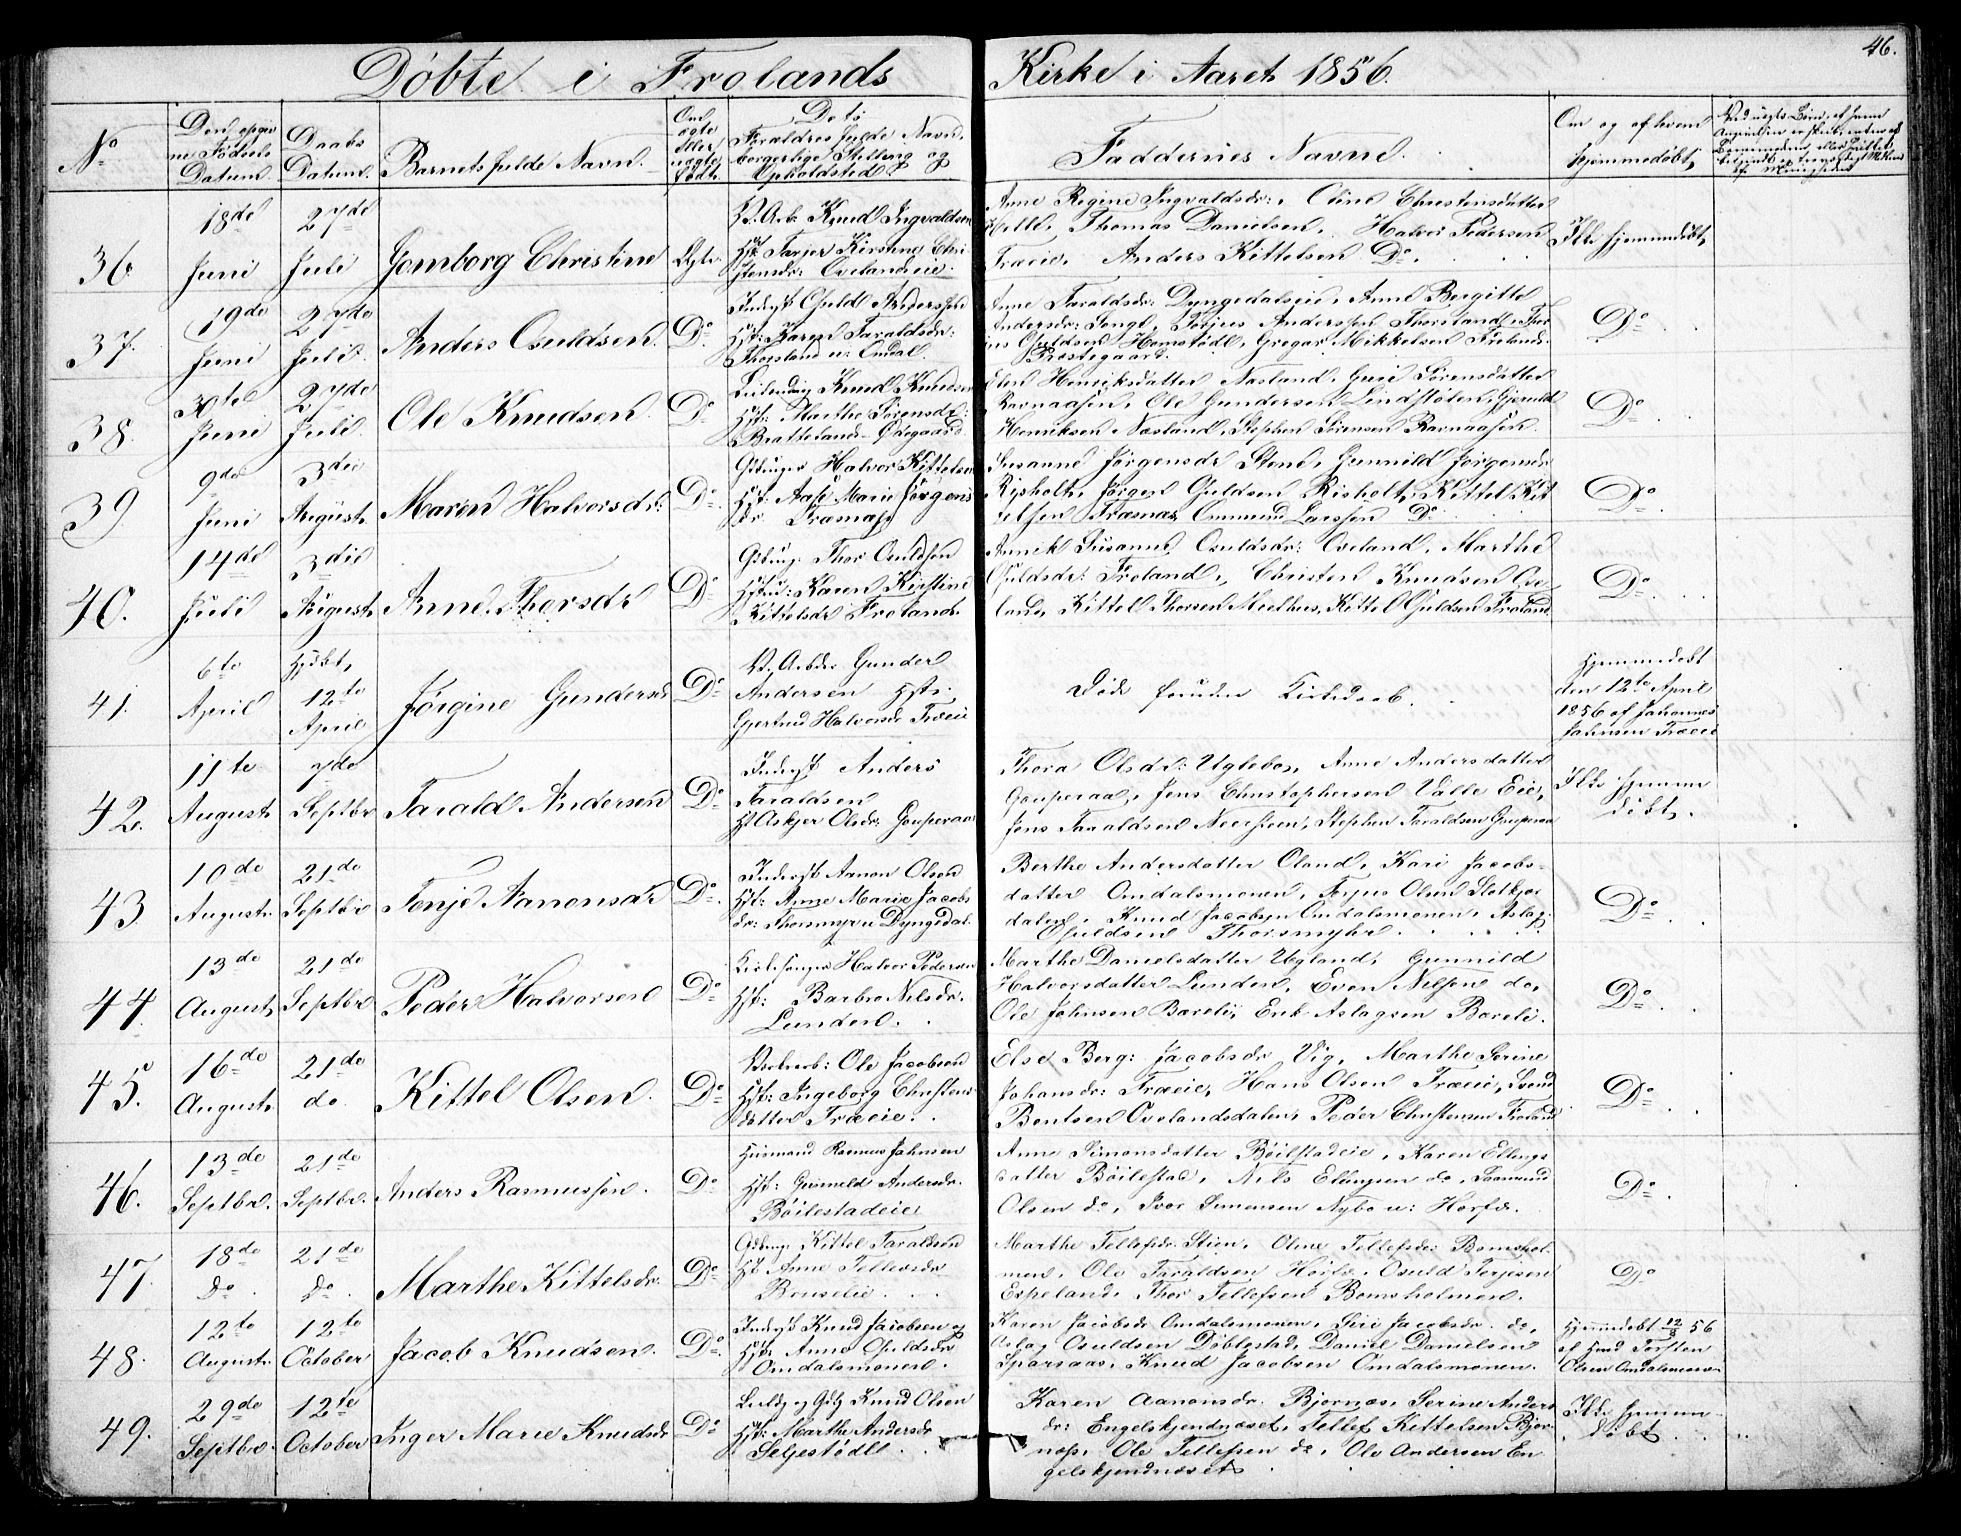 Döbte i Frolands Kirke i Aaret 1856.
46.
No
Den opgiv
ne Födsels
Datum.
Daabs
Datum.
Barnets fulde Navn.
Om
ægte
eller
uægte
födt.
Deto
Forældres fulde Navn,
borgerlige Stilling og
Opholdsted
Faddernes Navne.
Om og af hvem
hjemmedöbt,
36
18de
Juni
27de
Juli
Gomborg Christine
Ægte.
Knud Ingvaldsen
Hst: Tarjer Kirstine Chri-
stensdr: Ovelandseie.
Anne Regine Ingvaldsdr:, Christensdatter
Helle, Thomas Danielsen, Halvor Pedersen
Træeie, Anders Kittelsen Do.
Ikke hjemmedöbt,
37.
19de
Juni
27de
Juli.
Anders Osuldsen.
Do
Inderst Osuld Anderssen
Hst: Karen Taraldsdr:
Thorsland u: Omdal.
Anne Taraldsdr: Dyngedalseie, Anne Bergitte
Andersdr: Songe, Terjus Anderssen Thorsland, Ter
jus Osuldsen Hamstödl, Gregar Mikkelsen Frolands
Præstegaard.
Do
38.
30te
Juni
27de
Juli.
Ole Knudsen.
Do
Leilending Knud Knudsen
Hst: Marthe Sörensdr:
Brattelands-Ödegaard
Elen Henriksdatter Næsland, Guri Sörensdatter
Ravnaasen, Ole Gundersen Lindstölen, Gjeruld
Henriksen Næsland, Stephen Sörensen Ravnaasen.
Do
39
9de
Juni
3die
August.
Maren Halvorsdr:
Do
Gdbruger Halvor Kittelsen
Hst: Aase Marie Jörgens
dr. Træmas
Susanne Jörgensdr Stene, Gunnild Jörgensdr
Risholt, Jörgen Osuldsen Risholt, Kittel Kit
telsen Træmas, Ommund Larssen Do.
Do
40.
14de
Juli
3die
August.
Anne Thorsdr
Do
Gdbrug. Thor Osuldsen
Hstru: Karen Kirstine
Kittelsdr Froland.
Annik Susanne Osuldsdr: Oveland, Marthe
Osuldsdr: Froland, Christen Knudsen Ove
land, Kittel Thorsen Mælhus, Kittel Osuldsen Froland
Do
41.
6te
April
Hjdbt,
12te
April
Jörgine Gundersd
Do
Gunder
Andersen Hstr:
Gjertrud Halvorsdr Træeie
Död foruden Kirkedaab.
Hjemmedöbt
den 12te April
1856 af Johannes
Johnsen Træeie
42.
11te
August.
7de
Septbr
Tarald Andersen
Do
Inderst Anders
Taraldsen
Ht Askjer Olsdr: Gouperaa
Thora Olsdr: Uglebo, Anne Andersdatter
Gouperaa, Jens Christophersen Valle Eie,
Jens Taraldsen Neersteen, Stephen Taraldsen Gouperaa
Ikke hjemme
döbt.
43
10de
August.
21de
Septbr
Tonje Aanonsdr
Do
Inderst Aanon Olsen
Hst: Anne Marie Jacobs
dr: Thorsmyr u Dyngedal.
Berthe Andersdatter Oland, Kari Jacobs-
datter Omdalsmonen, Terjus Olsen Slotkjer
dalen, Knud Jacobsen Omdalsmonen, Aslag
Osuldsen Thorsmyhr.
Do
44.
13de
August,
21de
Septbr
Peder Halvorsen
Do
Kirkesanger Halvor Pedersen
Hst: Barbro Nilsdr:
Lunden.
Marthe Danielsdatter Ugland, Gunnild
Halvorsdatter Lunden, Even Nilsen do,
Ole Johnsen Boreli, Erik Aslagsen Boreli.
Do
45.
16de
August.
21de
do.
Kittel Olsen.
Do
Ole Jacobsen
Hst: Ingeborg Christens
datter Træeie.
Else Berg: Jacobsdr Vig, Marthe Serine
Johansdr: Træeie, Hans Olsen Træeie, Svend
Bentsen Ovelandsdalen, Peder Christensen Froland
Do
46.
13de
Septbr.
21de
Septbr.
Anders Rasmussen.
Do
Huusmand Rasmus Johnsen
Hst: Gunneld Andersdr.
Böilestadeie.
Anne Simonsdatter Böilstadeie, Karen Ellings
datter Böilestad, Nils Ellingsen do, Saamund
Olsen do, Ivor Simonsen Nybo u: Horfde.
Do
47.
18de
Do.
21de
Do.
Marthe Kittelsdr.
Do
Gdbrug Kittel Taraldsen
Ht Anne Tellevsdr
Bruselie.
Marthe Tellefsdr. Stien, Oline Tellefsdr. Bomshol
men, Ole Taraldsen Horfde, Osuld Terjesen
Espeland, Thor Tellefsen Bomsholmen.
Do
48.
12te
August.
12te
October
Jacob Knudsen.
Do
Inderst Knud Jacobsen og
Hst: Anne Osuldsdr
Omdalsmonen.
Karen Jacobsdr Omdalsmonen, Siri Jacobsdr. do,
Aslag Osuldsen Döblestad, Daniel Danielsen
Sparsaas, Knud Jacobsen Omdalsmonen.
Hjemmedöbt 12/8 56
af Hmd Torsten
Olsen Omdalsmonen
49.
29de
Septbr.
12te
October
Inger Marie Knudsdr
Do
Leildg og Gdbg Knud Olsen
Hst: Marthe Andersdr
Seljestödle
Karen Aanonsdr. Bjornæs, Serine Anders
dr: Engelskjendnæset, Tellef Kittelsen Bjor
næs, Ole Tellefsen do, Ole Andersen En
gelskjendnæset
Ikke hjemme-
döbt